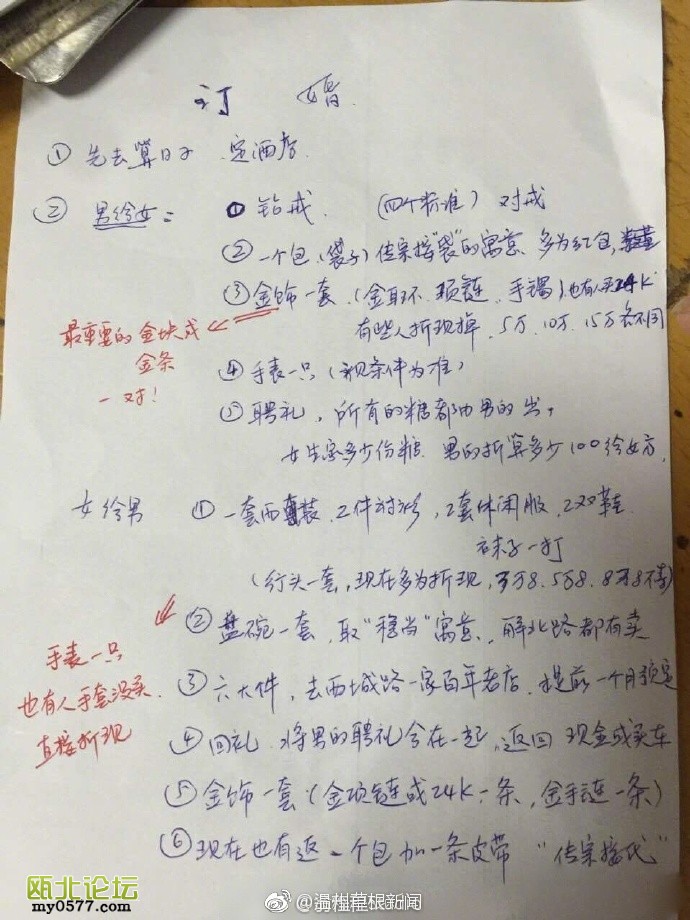 订 婚
① 先去算日子 定酒店
② 男给女: ① 钻戒 (四个标准) 对戒
② 一个包(袋子)传宗接“袋”的寓意 多为红包,
③ 金饰一套 (金耳环 项链 手镯) 也有人买24K
有些人折现掉 5万 10万 15万各不同
最重要的金块或
金条
一对!
④ 手表一只 (视条件为准)
⑤ 聘礼,所有的糖都由男的出,
女生家多少份糖 男的折算多少100给女方,
女给男 ① 一套西装,2件衬衫,2套休闲服,2双鞋
袜子一打
(行头一套,现在多为折现, 5万8.8万8不等)
② 盘碗一套,取“稳当”寓意,解北路都有卖
手表一只
也有人手表没买,
直接折现
③ 六大件,去西城路一家百年老店,提前一个月预定
④ 回礼 将男的聘礼合在一起,返回 现金或买车
⑤ 金饰一套 (金项链或24K一条,金手链一条)
⑥ 现在也有返一个包加一条皮带 “传宗接代”
瓯北论坛
my0577.com
@温州草根新闻